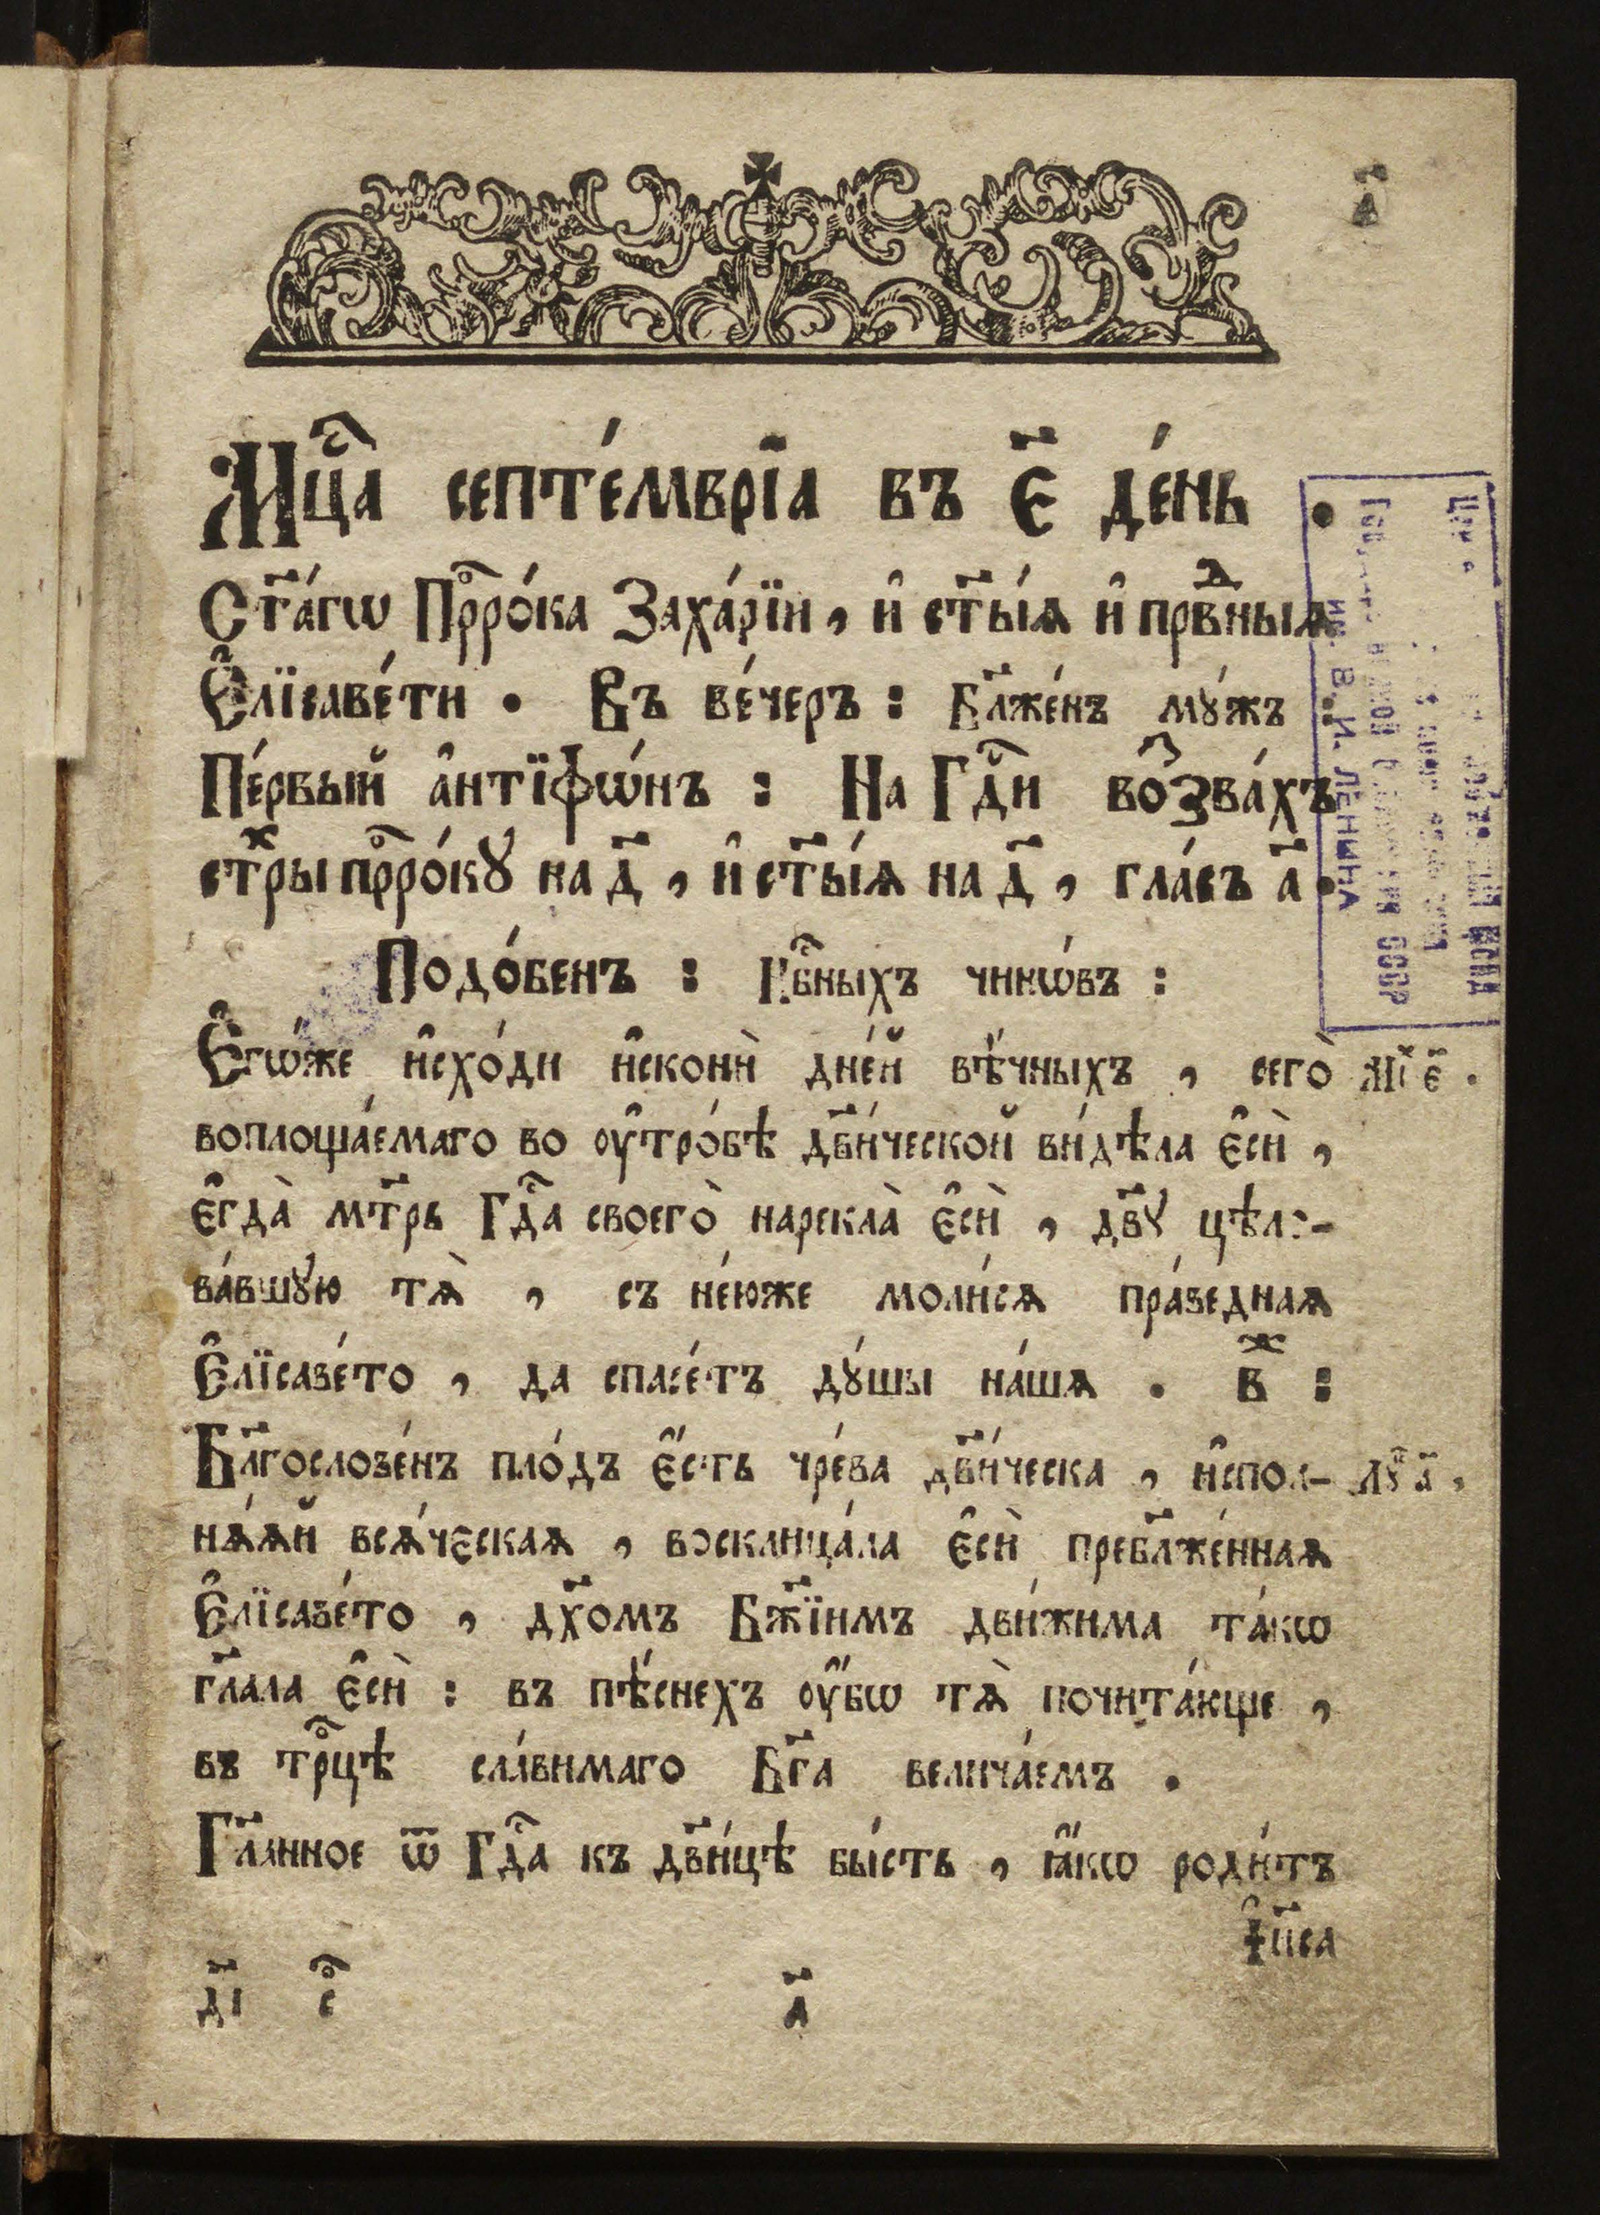 а҃
Мц҇а септе́мврїа въ є҃ де́нь .
Ст҃а́гѡ Прⷪ҇ро́ка Заха́рїи , и҆ ст҃ы́ѧ и҆ првⷣныѧ
Є҆лїсаве́ти . Въ ве́черъ : Бл҃же́нъ мꙋ́жъ :
Пе́рвый а҆нтїфѡ́нъ : На Гдⷭ҇и воз̾зва́хъ
стⷯры прⷪ҇ро́кꙋ на д҃ , и҆ ст҃ы́ѧ на д҃ , гла́съ а҃ .
Подо́бенъ : Нбⷭ҇ныхъ чинѡ́въ :
Є҆гѡ́же и҆схо́ди и҆сконѝ дне́й вѣ́чныхъ , сего̀ Мїⷯ є҃ .
воплоща́емаго во ᲂу҆тро́бѣ дв҃и́ческой ви́дѣла є҆сѝ ,
є҆гда̀ мт҃рь Гдⷭ҇а своего̀ нарекла̀ є҆сѝ , дв҃ꙋ цѣло-
ва́вшꙋю тѧ̀ , съ не́юже моли́сѧ пра́веднаѧ
Є҆лїсаве́то , да спасе́тъ дꙋ́шы на́шѧ . в҃ⷤ :
Бл҃гослове́нъ пло́дъ є҆́сть чре́ва дв҃и́ческа , и҆спол- Лꙋⷦ҇ а҃ ,
нѧ́ѧй всѧ́ческаѧ , восклица́ла є҆сѝ пребл҃же́ннаѧ
Є҆лїсаве́то , дх҃омъ Бж҃їимъ дви́жима та́кѡ
гл҃ала є҆сѝ : въ пѣ́снехъ ᲂу҆́бѡ тѧ̀ почита́юще ,
въ трⷪ҇цѣ сла́вимаго Бг҃а велича́емъ .
Гл҃анное ѿ Гдⷭ҇а къ дв҃и́цѣ бы́сть , ꙗ҆́кѡ роди́тъ
І҆и҃са
дı҃ сⷪ҇ а҃
им. В. И. ЛЕНИНА
СССР